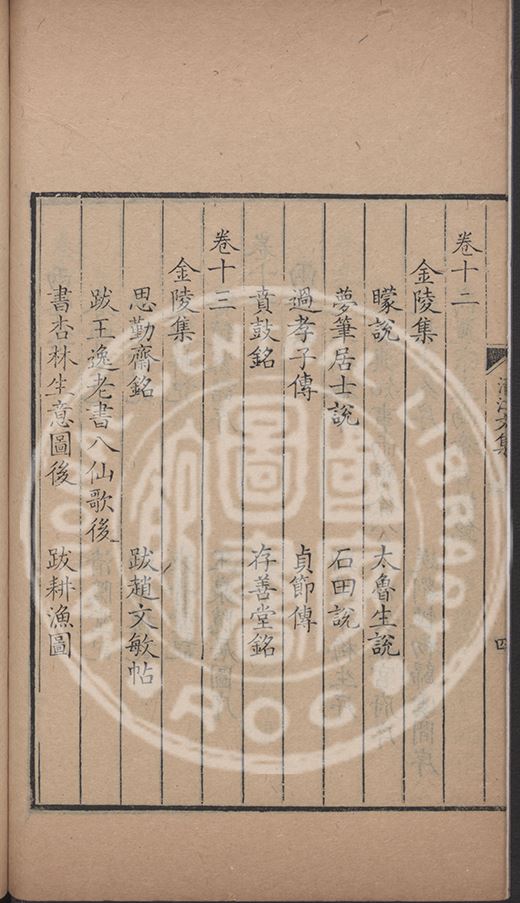 卷十二
金陵集
矇說 太魯生說
夢筆居士說 石田說
過孝子傳 貞節傳
賁鼓銘 存善堂銘
卷十三
金陵集
思勤齋銘 跋趙文敏帖
跋王逸老書八仙歌後
書杏林生意圖後 跋耕漁圖
四